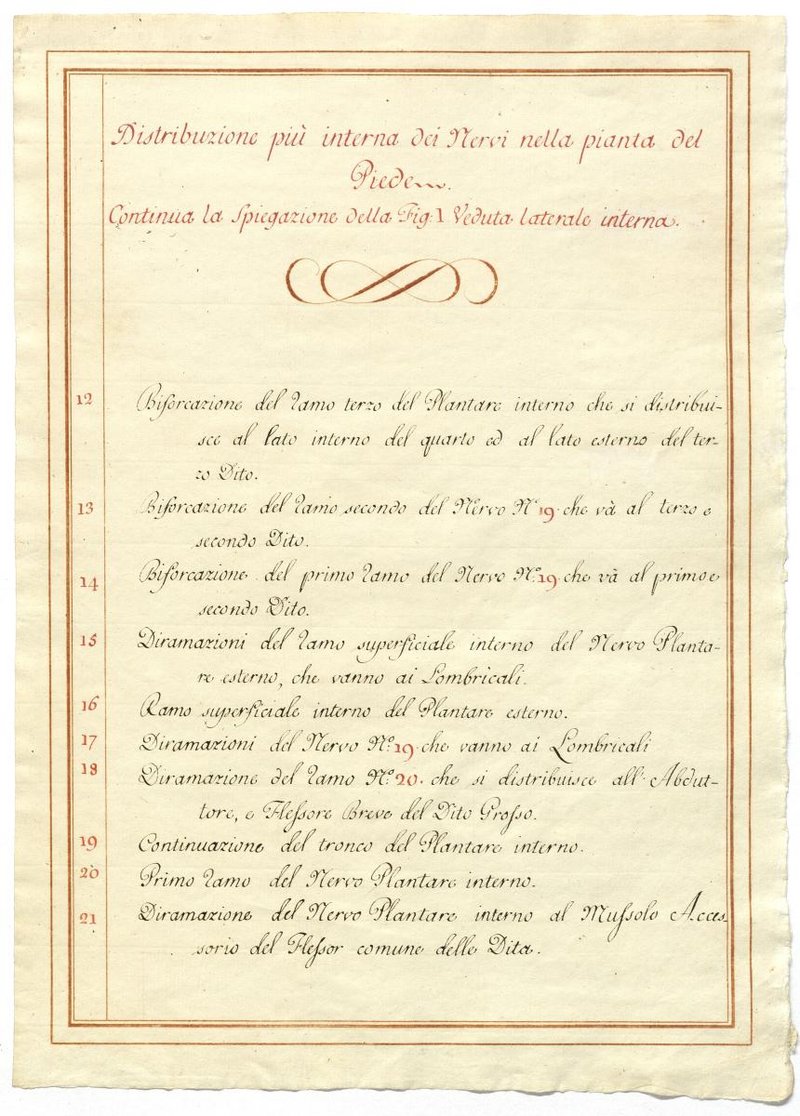 Distribuzione più interna dei Nervi nella pianta del
Piede.
Continua la Spiegazione della Fig. 1 Veduta laterale interna.
12 Biforcazione del ramo terzo del Plantare interno che si distribui-
sce al lato interno del quarto ed al lato esterno del ter-
zo Dito.
13 Biforcazione del ramo secondo del Nervo N.º 19. che và al terzo e
secondo Dito.
14 Biforcazione del primo ramo del Nervo N.º 19. che và al primo e
secondo Dito.
15 Diramazioni del ramo superficiale interno del Nervo Planta-
re esterno, che vanno ai Lombricali.
16 Ramo superficiale interno del Plantare esterno.
17 Diramazioni del Nervo N.º 19. che vanno ai Lombricali
18 Diramazione del ramo N.º 20. che si distribuisce all' Abdut-
tore, e Flessore Breve del Dito Grosso.
19 Continuazione del tronco del Plantare interno.
20 Primo ramo del Nervo Plantare interno.
21 Diramazione del Nervo Plantare interno al Mussolo Acces
sorio del Flessor comune delle Dita.